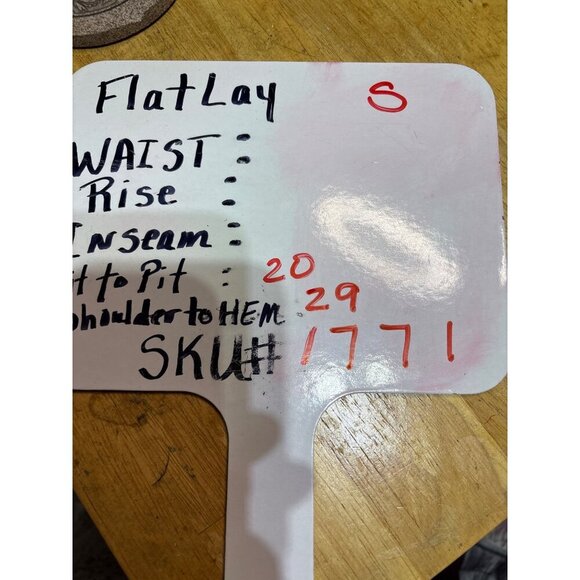 FlatLay S
WAIST :
Rise :
Inseam :
t to Pit : 20
shoulder to HEM 29
SKU# 1771